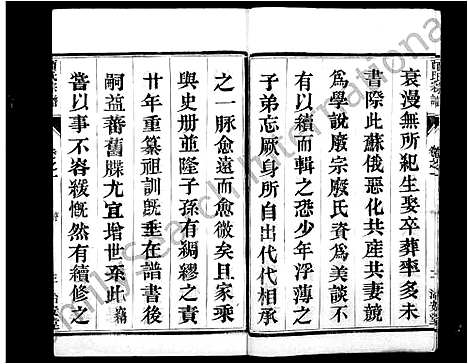 衰漫無所紀生娶卒葬率多未
書際此蘇俄惡化共産共妻競
為學説廢宗廢氏資為美談不
有以續而輯之恐少年浮薄之
子弟忘厥身所自出代代相承
之一脉愈遠而愈微矣且家乘
與史册並隆子孫有綢繆之責
廿年重纂祖訓既垂在譜書後
嗣益蕃舊牒尤宜增世系此籌
嘗以事不容緩慨然有續修之